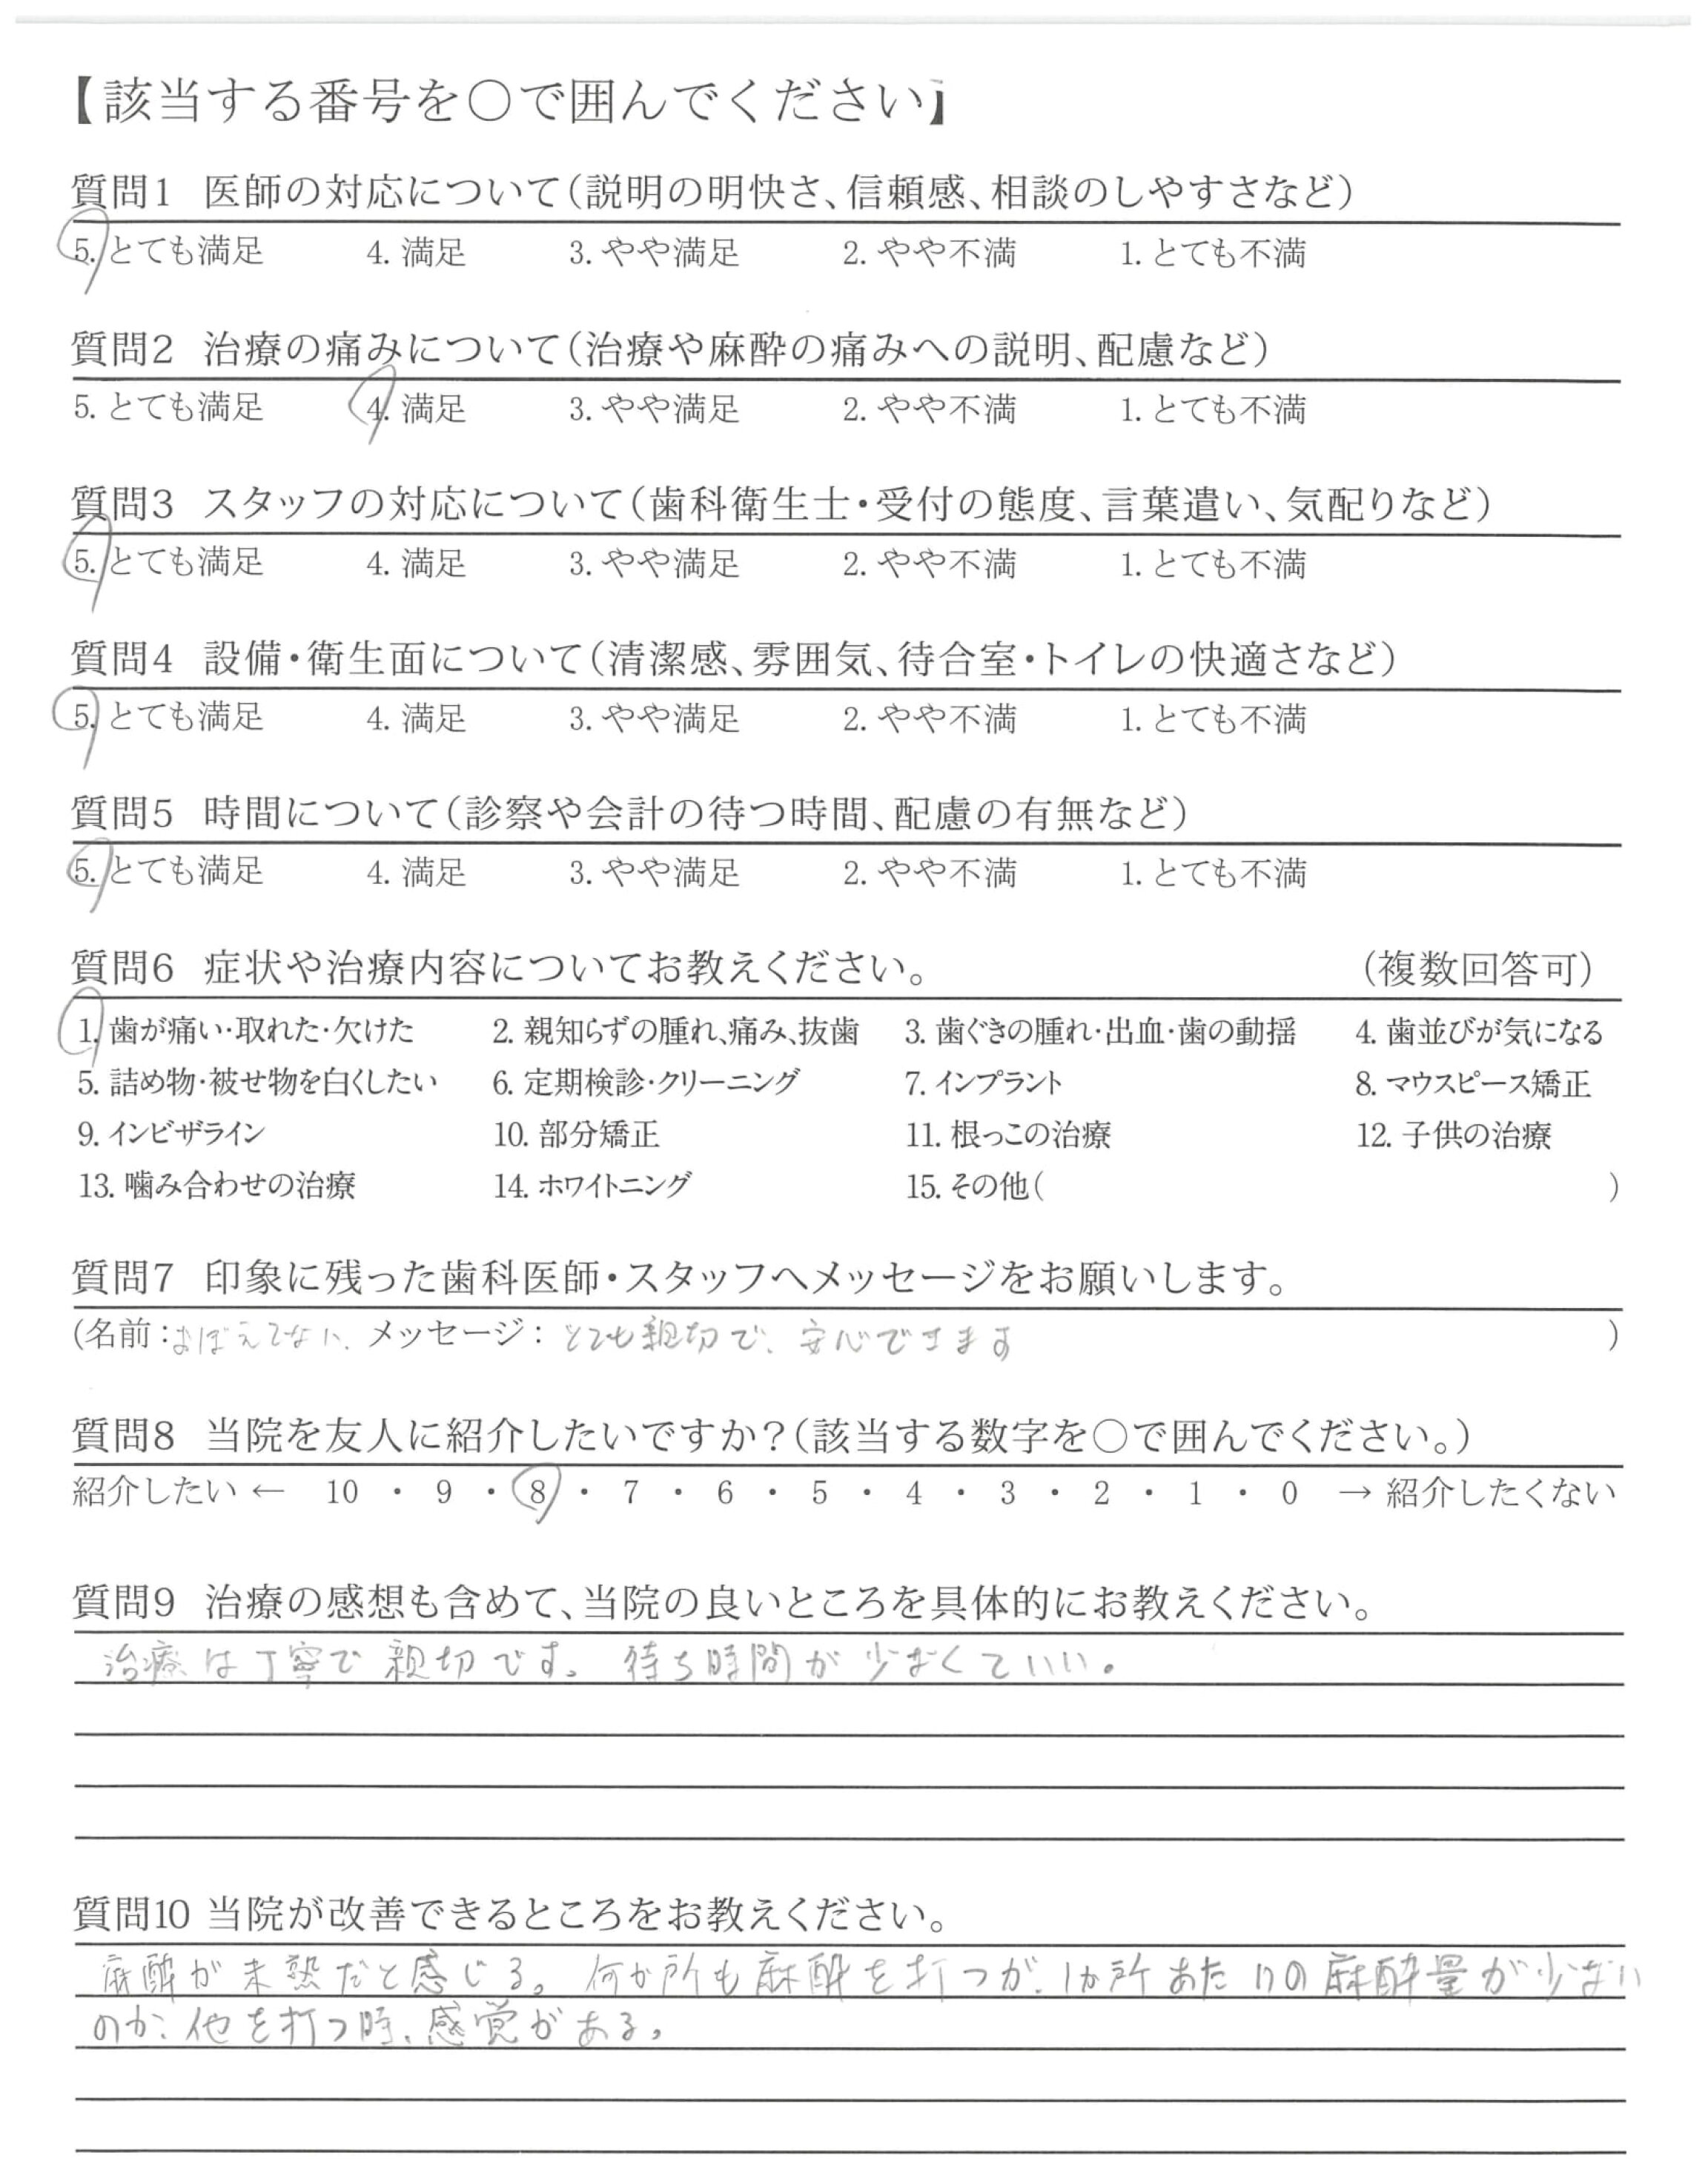 【該当する番号を○で囲んでください】
質問1 医師の対応について(説明の明快さ、信頼感、相談のしやすさなど)
5. とても満足 4. 満足 3. やや満足 2. やや不満 1. とても不満
質問2 治療の痛みについて(治療や麻酔の痛みへの説明、配慮など)
5. とても満足 4. 満足 3. やや満足 2. やや不満 1. とても不満
質問3 スタッフの対応について(歯科衛生士・受付の態度、言葉遣い、気配りなど)
5. とても満足 4. 満足 3. やや満足 2. やや不満 1. とても不満
質問4 設備・衛生面について(清潔感、雰囲気、待合室・トイレの快適さなど)
5. とても満足 4. 満足 3. やや満足 2. やや不満 1. とても不満
質問5 時間について(診察や会計の待つ時間、配慮の有無など)
5. とても満足 4. 満足 3. やや満足 2. やや不満 1. とても不満
質問6 症状や治療内容についてお教えください。 (複数回答可)
1. 歯が痛い・取れた・欠けた 2. 親知らずの腫れ、痛み、抜歯 3. 歯ぐきの腫れ・出血・歯の動揺 4. 歯並びが気になる
5. 詰め物・被せ物を白くしたい 6. 定期検診・クリーニング 7. インプラント 8. マウスピース矯正
9. インビザライン 10. 部分矯正 11. 根っこの治療 12. 子供の治療
13. 噛み合わせの治療 14. ホワイトニング 15. その他( )
質問7 印象に残った歯科医師・スタッフへメッセージをお願いします。
(名前:おぼえてない、 メッセージ: とても親切で、安心できます )
質問8 当院を友人に紹介したいですか?(該当する数字を○で囲んでください。)
紹介したい ← 10 ・ 9 ・ 8 ・ 7 ・ 6 ・ 5 ・ 4 ・ 3 ・ 2 ・ 1 ・ 0 → 紹介したくない
質問9 治療の感想も含めて、当院の良いところを具体的にお教えください。
治療は丁寧で親切です。待ち時間が少なくていい。
質問10 当院が改善できるところをお教えください。
麻酔が未熟だと感じる。何か所も麻酔を打つが、1か所あたりの麻酔量が少ない
のか、他を打つ時、感覚がある。